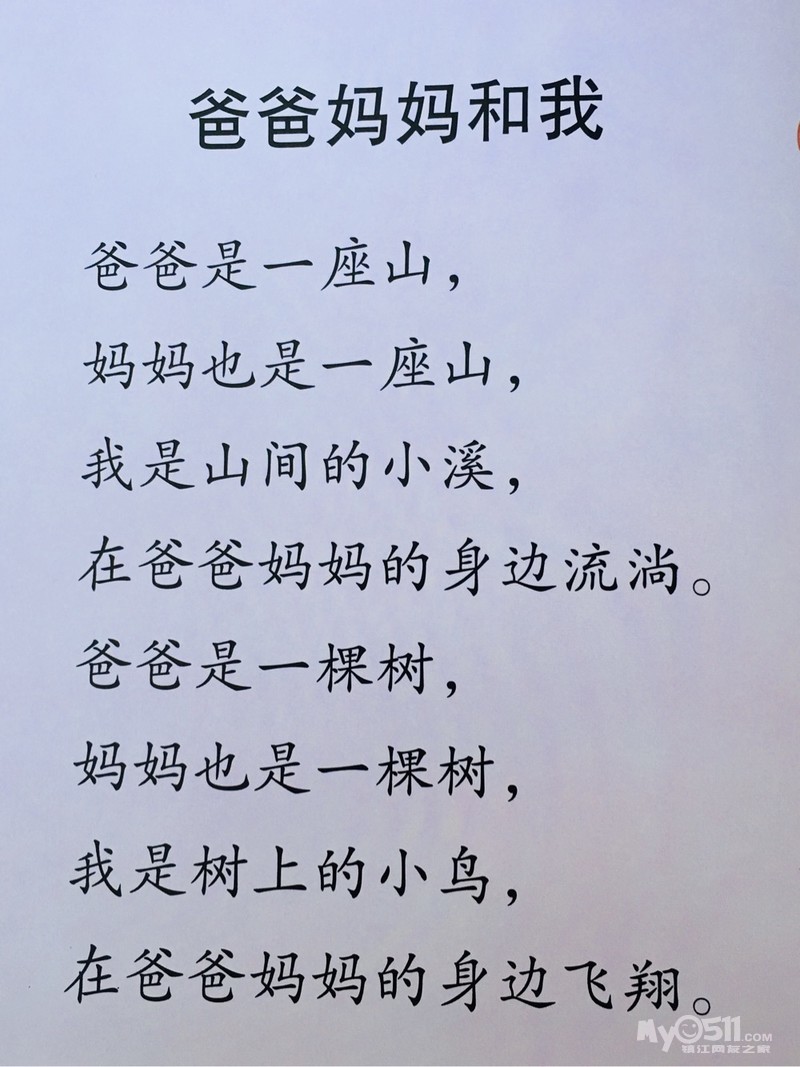 爸爸妈妈和我
爸爸是一座山，
妈妈也是一座山，
我是山间的小溪，
在爸爸妈妈的身边流淌。
爸爸是一棵树，
妈妈也是一棵树，
我是树上的小鸟，
在爸爸妈妈的身边飞翔。
My0511.COM
镇江网友之家